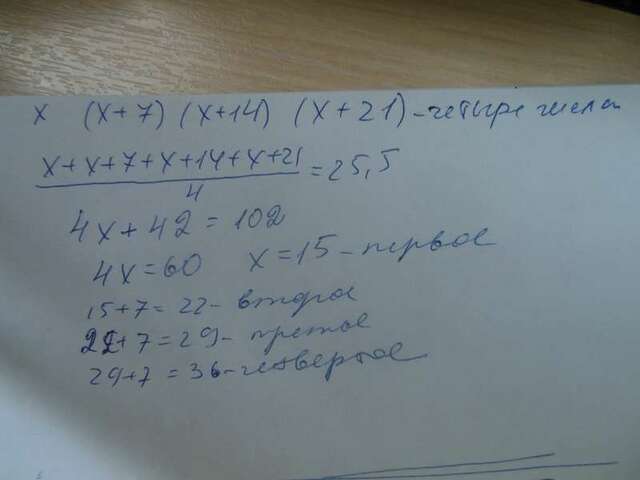 x (x+7) (x+14) (x+21) - четыре числа
x+x+7+x+14+x+21
4
=25,5
4x+42=102
4x=60 x=15 - первое
15+7=22- второе
22+7=29- третье
29+7=36-четвертое